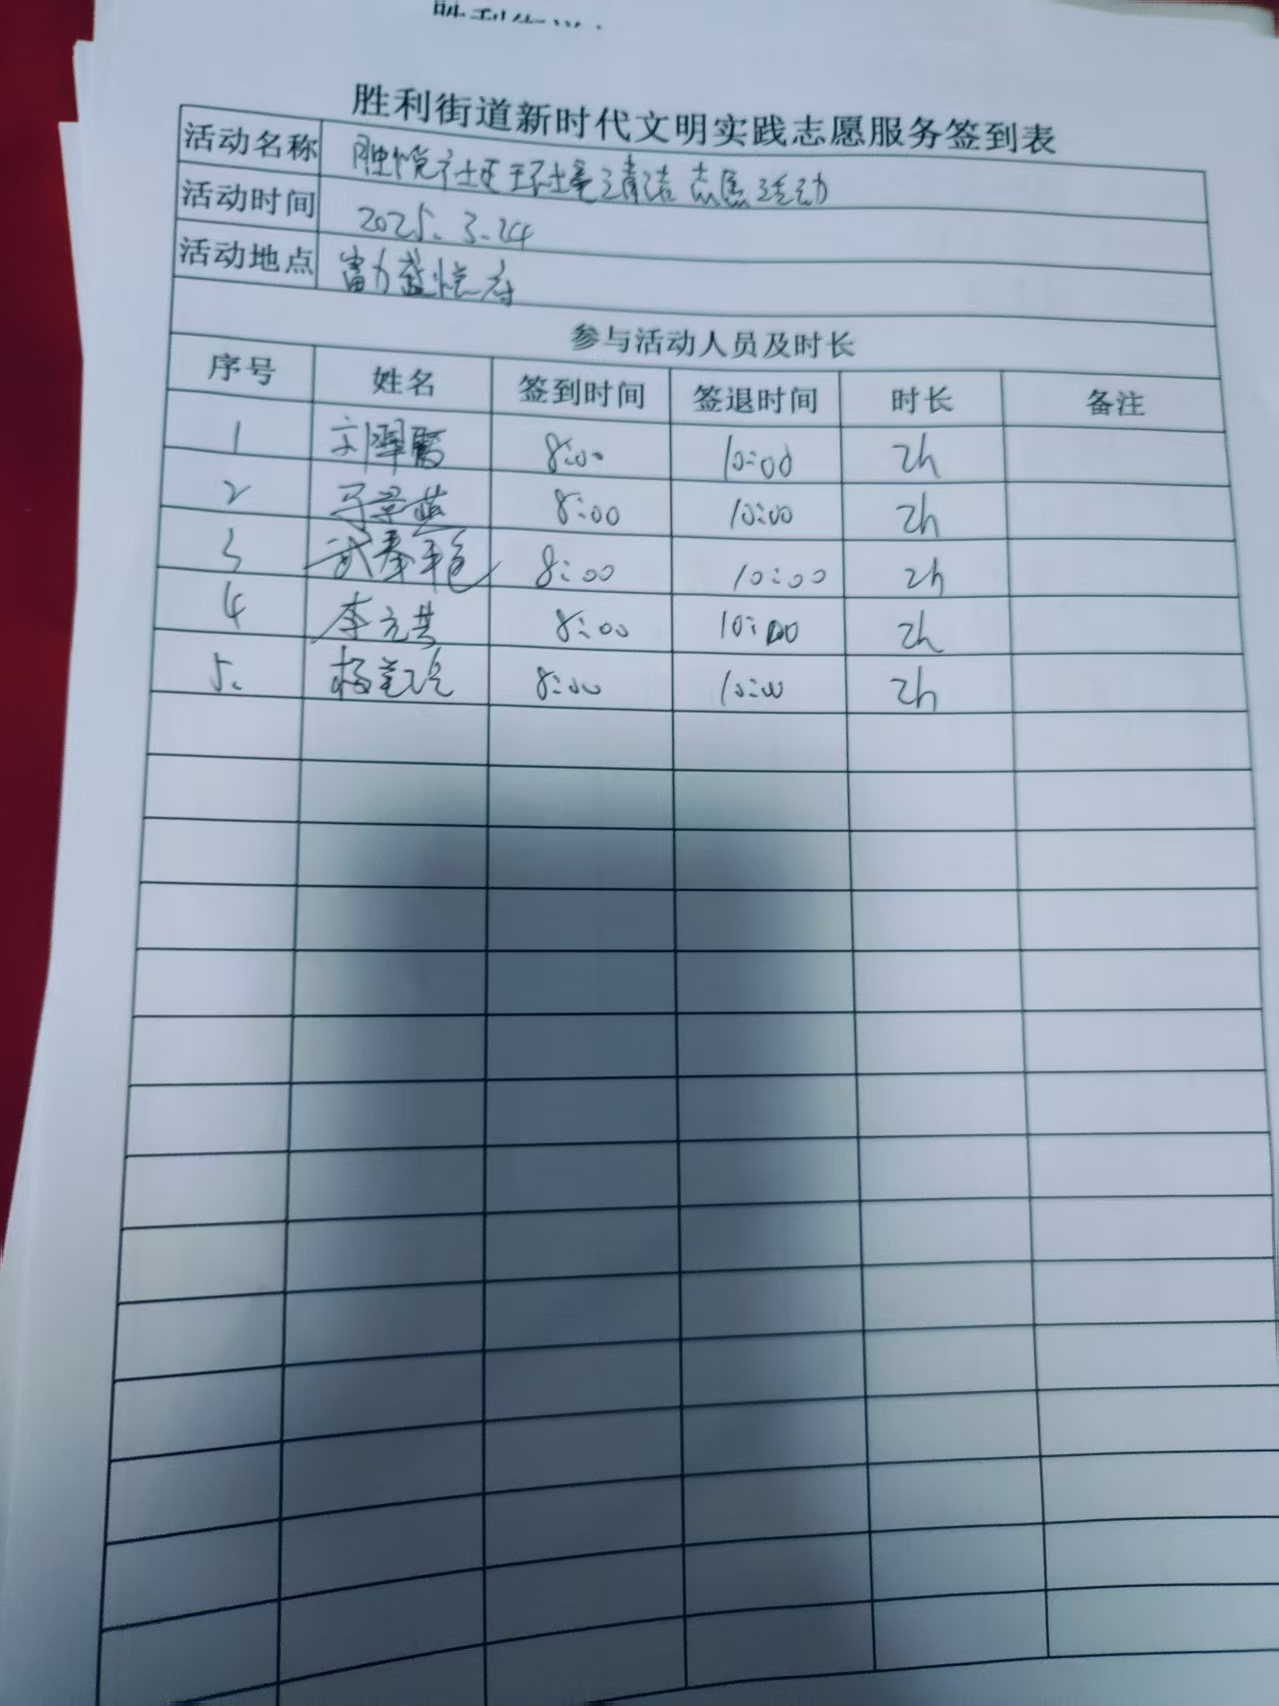 胜利街道新时代文明实践志愿服务签到表
活动名称 胜悦社区环境清洁志愿活动
活动时间 2025.3.24
活动地点 富力盛悦府
参与活动人员及时长
序号 姓名 签到时间 签退时间 时长 备注
1 刘 8:00 10:00 2h
2 8:00 10:00 2h
3 武春艳 8:00 10:00 2h
4 李元芸 8:00 10:00 2h
5. 杨 8:00 10:00 2h